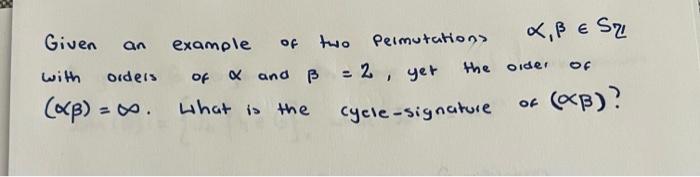 Given an example of two Permutations α,β ∈ Sℤ
with orders of α and β = 2, yet the order of
(αβ) = ∞. What is the cycle-signature of (αβ)?